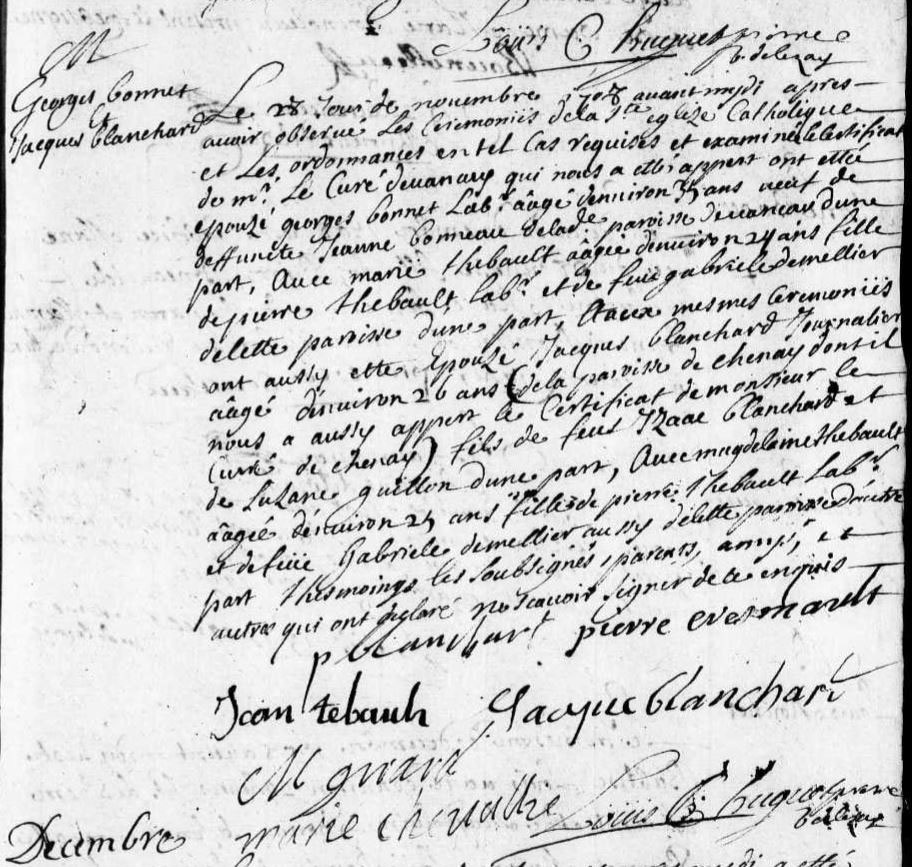 Louis C huguet prieure
de lezay
M
Georges bonnet
et
Jacques blanchard
Le 28 Jour de novembre 1708 avant midi apres
avoir observé Les Ceremonies de la Ste eglize Catholique
et Les ordonnances en tel Cas requises et examiné le Certificat
de mr. Le Curé de vancay qui nous a esté appert ont etté
epouzé georges bonnet Labr. aagé denviron 35 ans veuf de
deffuncte Jeanne bonneau de lade. paroisse de vancay dune
part, Avec marie thebault aagée denviron 24 ans fille
de pierre thebault, labr. et de feue gabriele demellier
de cette paroisse dune part, Et aux mesmes Ceremonies
ont aussy etté Epouzé Jacques blanchard Journalier
aagé denviron 26 ans (de la paroisse de chenay dont il
nous a aussy appert le Certificat de monsieur le
Curé de chenay) fils de feus Izaac blanchard et
de Suzane guillon dune part, Avec magdelaine thebault
aagée denviron 25 ans fille de pierre thebault Labr.
et de feue Gabriele demellier aussy de cette paroisse d'autre
part thesmoings les soubsignés parents, amys, et
autres qui ont declaré ne scavoir signer de ce enquis
p blanchart pierre evesmault
Jean tebault Jacque blanchart
M
marie chevallre Louis C huguet prieure
de lezay
Decembre